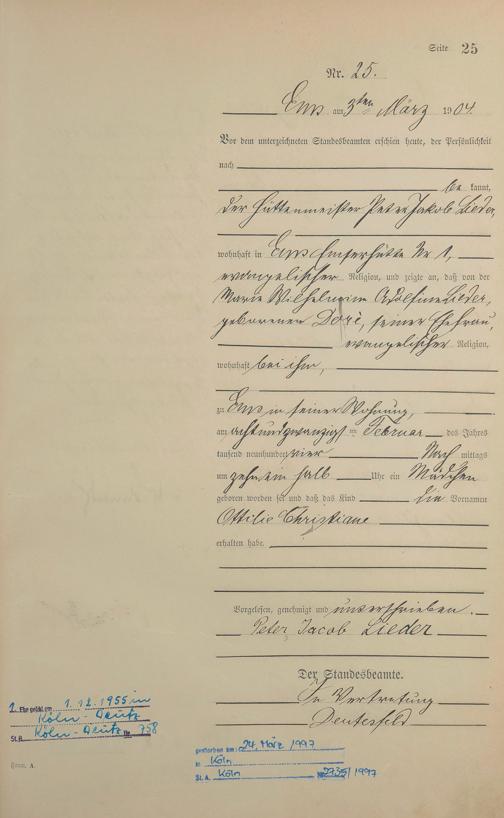 Seite 25
Nr. 25.
Ems am 3ten März 1904.
Vor dem unterzeichneten Standesbeamten erschien heute, der Persönlichkeit
nach
be kannt,
der Hüttenmeister Peter Jakob Lieder,
wohnhaft in Ems Emserhütte Nr 1,
evangelischer Religion, und zeigte an, daß von der
Marie Wilhelmine Adolfine Lieder,
geborenen Doré, seiner Ehefrau,
evangelischer Religion,
wohnhaft bei ihm,
zu Ems in seiner Wohnung,
am achtundzwanzigsten Februar des Jahres
tausend neunhundert vier Nach mittags
um zehn ein halb Uhr ein Mädchen
geboren worden sei und daß das Kind die Vornamen
Ottilie Christiane
erhalten habe.
Vorgelesen, genehmigt und unterschrieben.
Peter Jacob Lieder
Der Standesbeamte.
In Vertretung
1. Ehe geschl. am 1.12.1955 in
Köln-Deutz
St.A. Köln-Deutz Nr. 758
gestorben am: 24. März 1997
in Köln
St. A. Köln Nr. 2935/1997
Form. A.